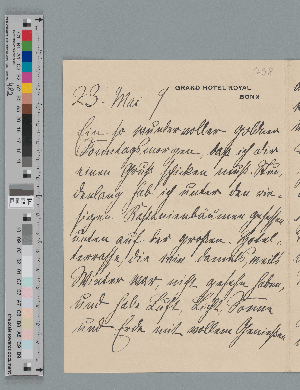 238
GRAND HOTEL ROYAL
BONN
23. Mai 9
Ein so wundervoller goldner
Sonntagsmorgen, daß ich dir
einen Gruß schicken muß. Stun-
denlang hab ich unter den rie-
sigen Kastanienbäumen gesessen
unten auf der großen Hotel-
terrasse, die wir damals, weils
Winter war, nicht gesehn haben,
und habe Luft, Licht, Sonne
und Erde mit vollem Genießen